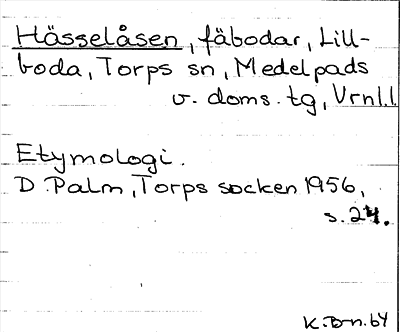 Hässelåsen, fäbodar, Lill-
boda, Torps sn, Medelpads
v. doms. tg, Vrnl.l.
Etymologi.
D. Palm, Torps socken 1956,
s. 24.
K.D-n.64